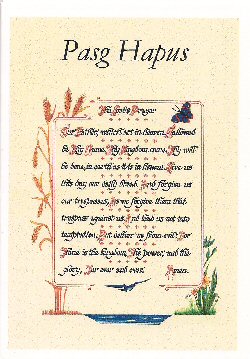 Pasg Hapus
The Lord's Prayer
Our Father, which art in Heaven, Hallowed
be Thy Name, Thy Kingdom come, Thy will
be done, in earth as it is in Heaven. Give us
this day our daily bread. And forgive us
our trespasses, As we forgive them that
trespass against us. And lead us not into
temptation, But deliver us from evil: For
Thine is the kingdom, The power, and the
glory, For ever and ever. Amen.